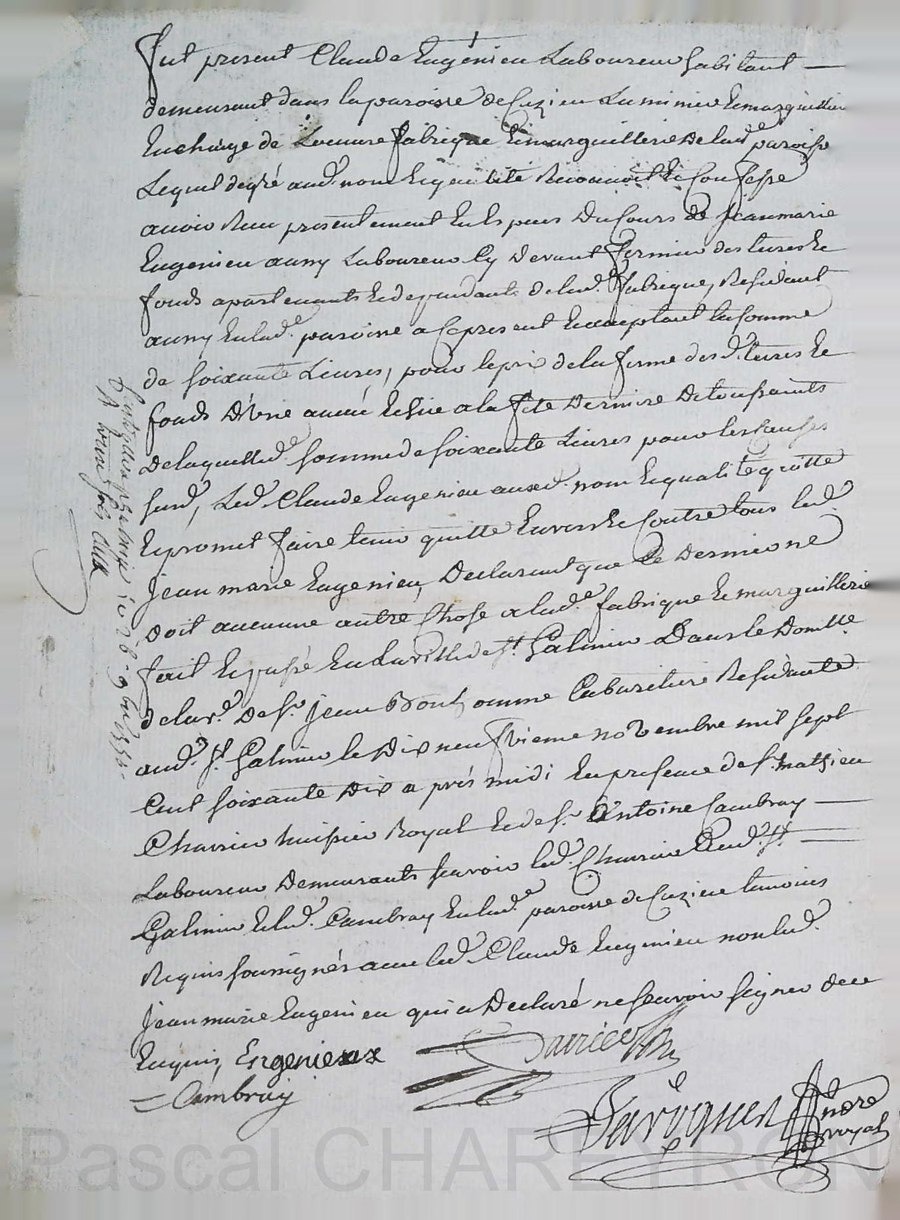 Fut present Claude Eugenieu Laboureur habitant
demeurant dans la paroisse de Cuzieu Luminier Et marguillier
En charge de Loeuure fabrique Et marguillerie de lad.e paroisse
Lequel de gré aud. nom Et qualité Reconnoit Et Confesse
auoir Reçu presentement En Especes Du Cours de Jean marie
Eugenieu aussy Laboureur Cy Deuant fermier des terres Et
fonds apartenants Et dependants de lad.e fabrique, Residant
aussy En lad.e paroisse a Ce present Et acceptant la somme
de soixante Liures, pour le prix de la ferme des d. terres Et
fonds D'une année Echue a la fete Derniere De toussaints
De laquelle d.e somme de soixante Liures pour les causes
susd., Led. Claude Eugenieu auxd. nom Et qualité quitte
Et promet faire tenir quitte Enuers Et Contre tous led.
Jean marie Eugenieu, Declarant que Ce Dernier ne
doit aucunne autre Chose a lad.e fabrique Et marguillerie
fait Et passé En la ville de St. Galmier Dans le Domlle
de la De Sr. Jean Bonhomme Cabaretier Residante
aud. St. Galmier le Dix neufvieme novembre mil sept
Cent soixante Dix a près midi En presence de Sr. Mathieu
Charrier huissier Royal Et de Sr. Antoine Cambray
Laboureur Demeurants scavoir led. Charrier aud. St.
Galmier Et led. Cambray En lad.e paroisse de Cuzieu temoins
Requis soussignés auec led. Claude Eugenieu non led.
Jean marie Eugenieu qui a Declaré ne sçavoir signer de ce
Enquis, Eugenieux
Cambray
nore royal
Pascal CHAREYRON